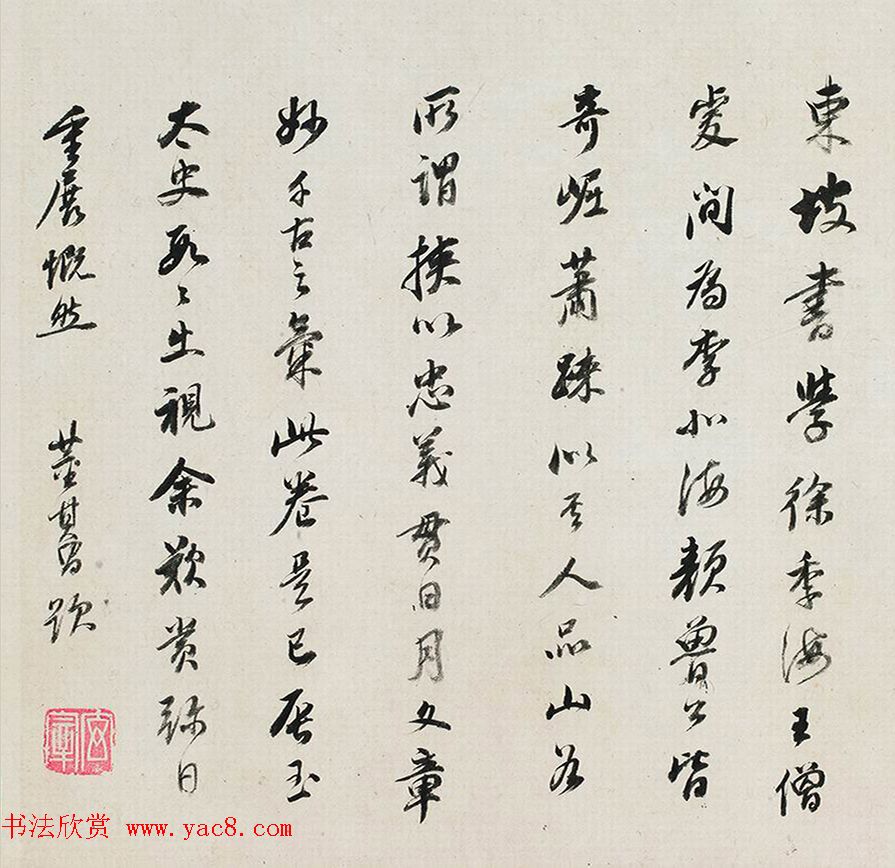 東坡書學徐季海王僧
虔間為李北海顏魯公皆
奇崛蕭踈似其人品山谷
所謂挾以忠義貫日月文章
妙千古之氣此卷是已辰玉
太史數〻出視余歎賞彌日
重展慨然 董其昌題
书法欣赏 www.yac8.com